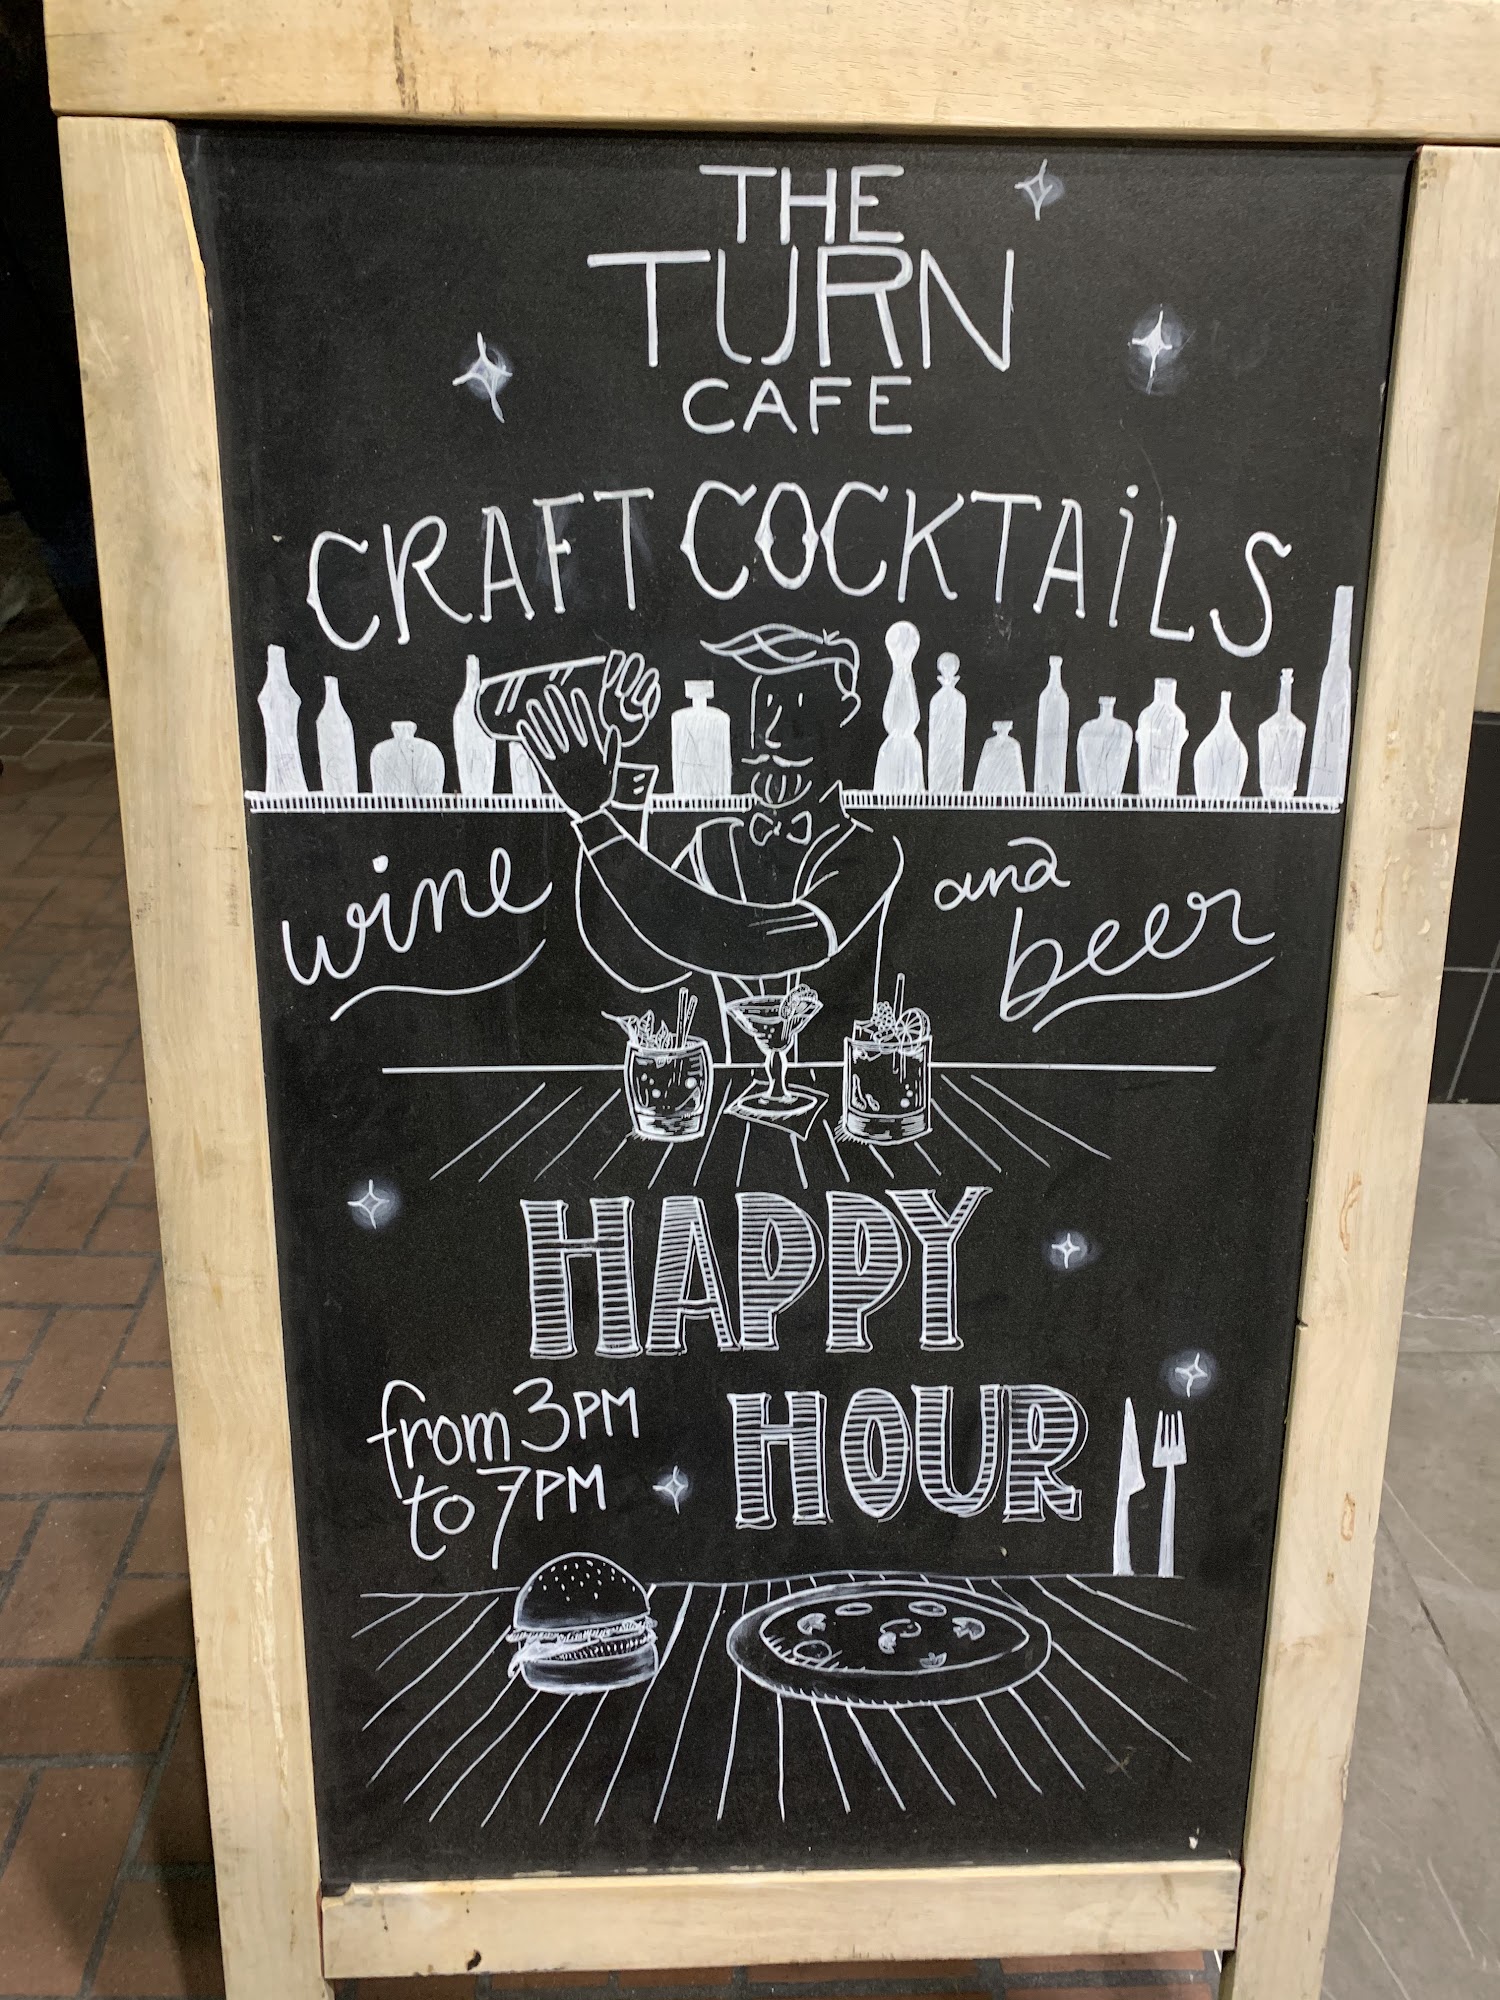 THE
TURN
CAFE
CRAFT COCKTAiLS
wine and
beer
HAPPY
from 3PM HOUR
to 7PM